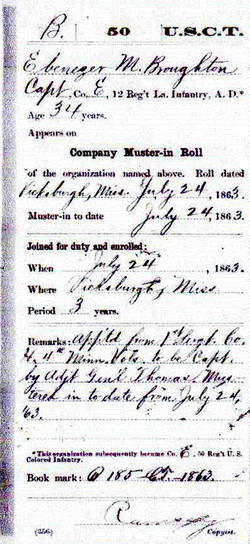 B. 50 U.S.C.T.
Ebenezer M. Broughton
Capt, Co. E, 12 Reg't La. Infantry, A. D.*
Age 34 years.
Appears on
Company Muster-in Roll
of the organization named above. Roll dated
Vicksburgh, Miss. July 24, 1863.
Muster-in to date July 24, 1863.
Joined for duty and enrolled:
When July 24, 1863.
Where Vicksburgh, Miss
Period 3 years.
Remarks: App'td from 1st Sergt. Co.
4th Minn. Vols. to be Capt.
by Adjt Genl Thomas. Mus-
tered in to date from July 24,
63.
*This organization subsequently became Co. E, 50 Reg't U. S.
Colored Infantry.
Book mark: 1863.
Ramsey
(356) Copyist.